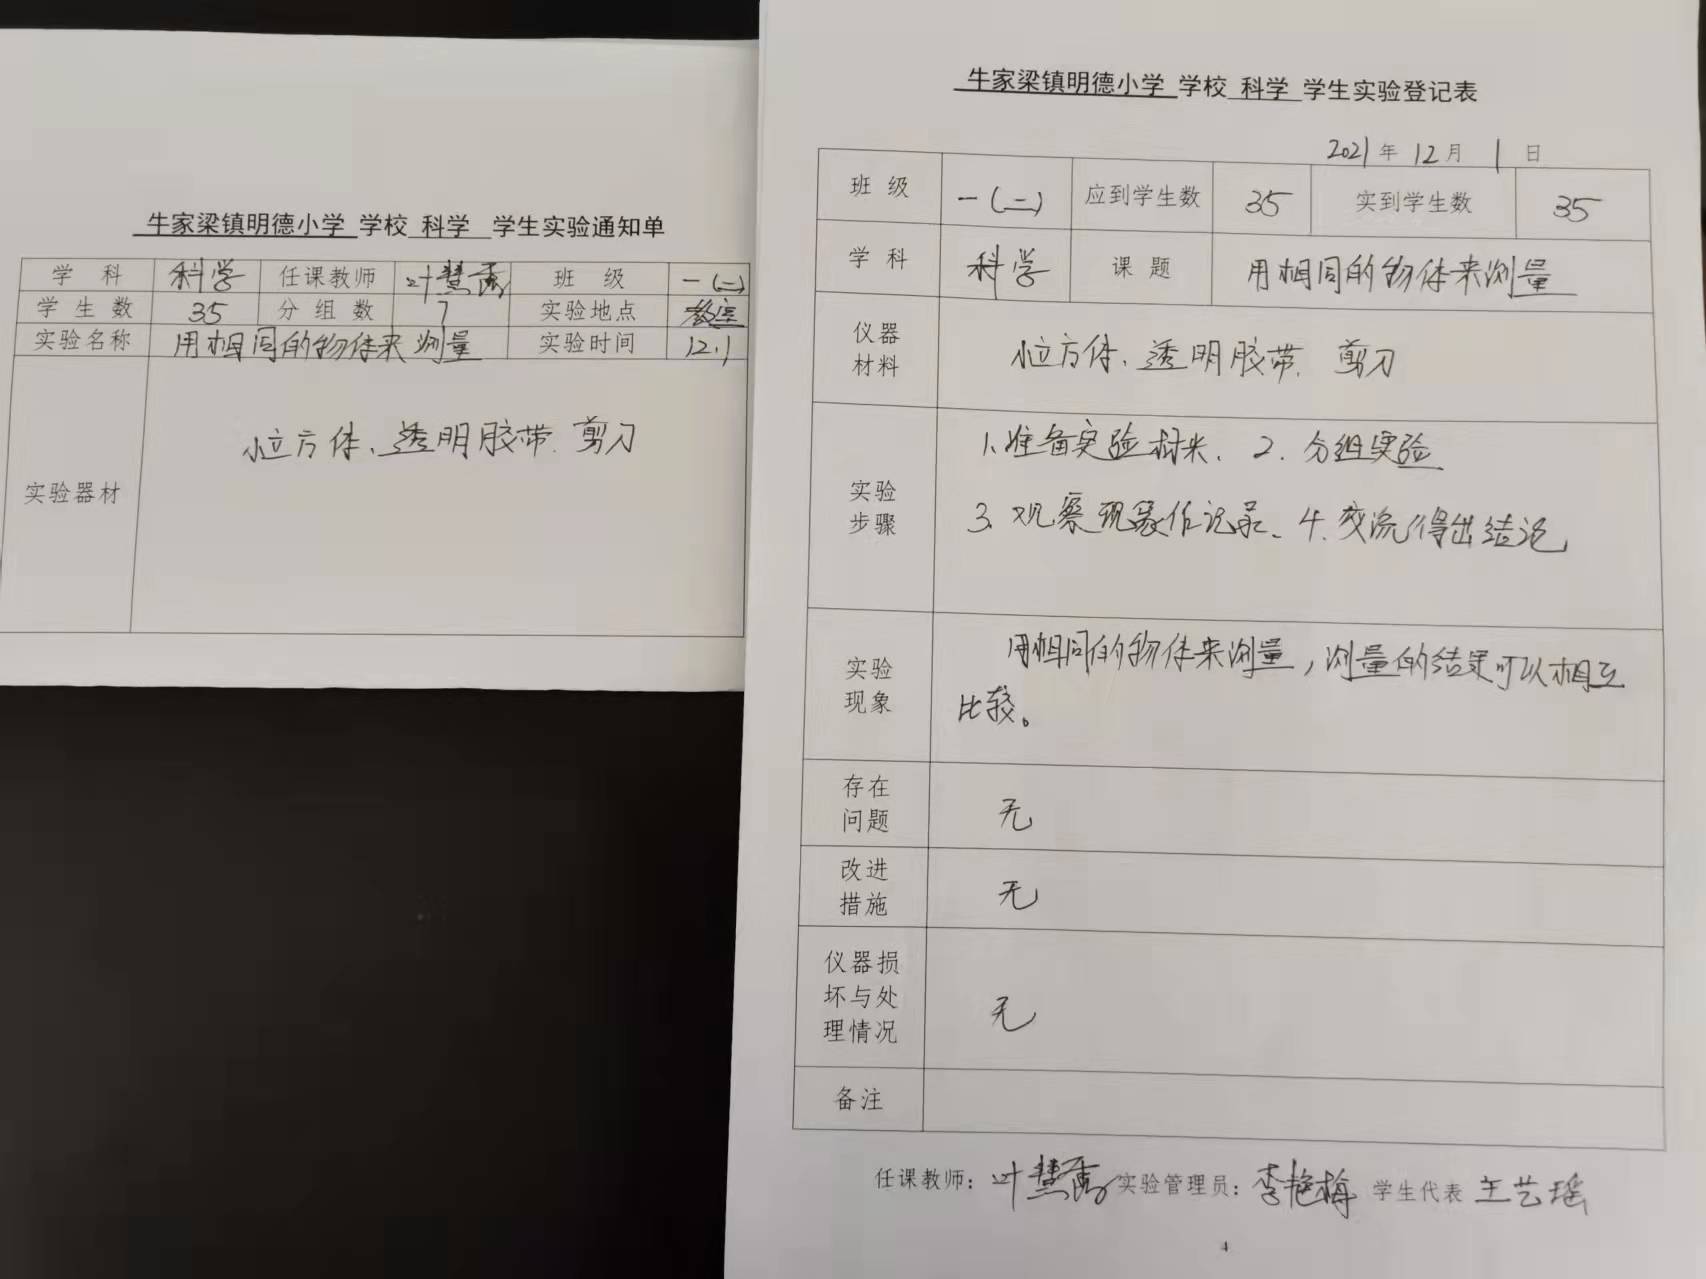 牛家梁镇明德小学 学校 科学 学生实验通知单
学 科 科学 任课教师 叶慧 班 级 一(二)
学 生 数 35 分 组 数 7 实验地点 教室
实验名称 用相同的物体来测量 实验时间 12.1
实验器材 小立方体、透明胶带、剪刀
牛家梁镇明德小学 学校 科学 学生实验登记表
2021 年 12 月 1 日
班 级 一(二) 应到学生数 35 实到学生数 35
学 科 科学 课 题 用相同的物体来测量
仪器
材料
小立方体、透明胶带、剪刀
实验
步骤
1、准备实验材米、2、分组实验
3、观察现象作记录、4、交流得出结论
实验
现象
用相同的物体来测量，测量的结果可以相互
比较。
存在
问题
无
改进
措施
无
仪器损
坏与处
理情况
无
备注
任课教师：叶慧 实验管理员：李艳梅 学生代表 王艺瑶
4